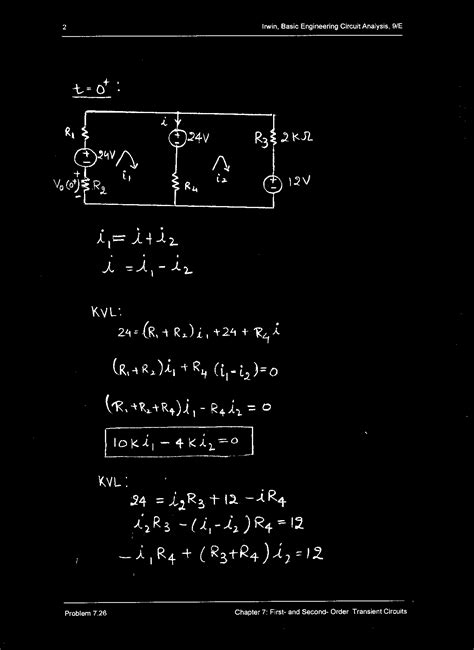 2 Irwin, Basic Engineering Circuit Analysis, 9/E
t = 0⁺ :
i
R₁ 24V R₃ 2 kΩ
24V
i₁ i₂
V₀(0⁺) R₂ R₄ 12V
i₁ = i + i₂
i = i₁ - i₂
KVL:
24 = (R₁ + R₂) i₁ + 24 + R₄ i
(R₁ + R₂) i₁ + R₄ (i₁ - i₂) = 0
(R₁ + R₂ + R₄) i₁ - R₄ i₂ = 0
10k i₁ - 4k i₂ = 0
KVL:
24 = i₂R₃ + 12 - iR₄
i₂R₃ - (i₁ - i₂) R₄ = 12
- i₁R₄ + (R₃ + R₄) i₂ = 12
Problem 7.26 Chapter 7: First- and Second- Order Transient Circuits